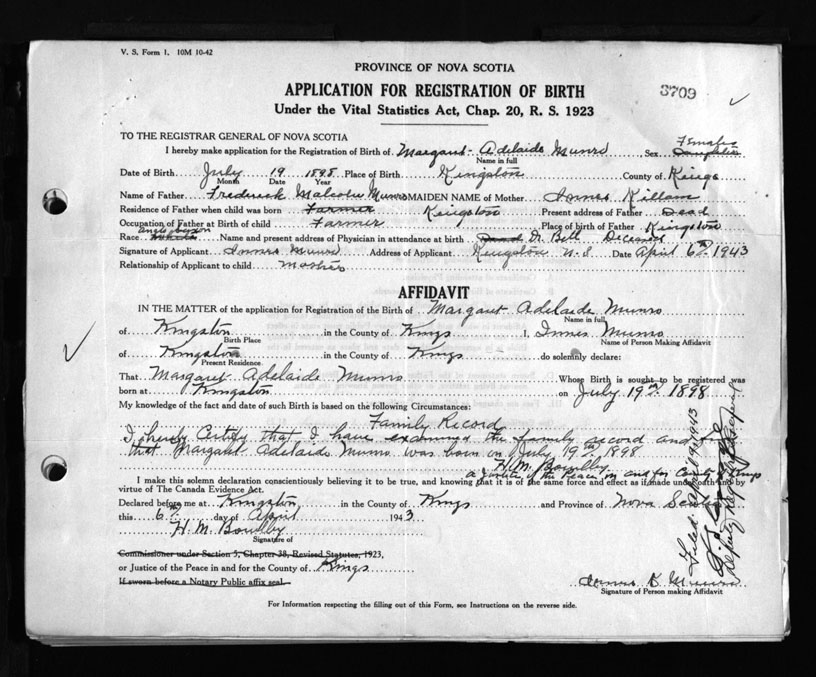 V. S. Form 1. 10M 10-42
PROVINCE OF NOVA SCOTIA
3709
APPLICATION FOR REGISTRATION OF BIRTH
Under the Vital Statistics Act, Chap. 20, R. S. 1923
TO THE REGISTRAR GENERAL OF NOVA SCOTIA
Female
I hereby make application for the Registration of Birth of Margaret Adelaide Munro, Sex
Name in full
Date of Birth July 19 1898 Place of Birth Kingston County of Kings
Month Date Year
Name of Father Frederick Malcolm Munro MAIDEN NAME of Mother Innes Killam
Residence of Father when child was born Farmer Kingston Present address of Father Dead
Occupation of Father at Birth of child Farmer Place of birth of Father Kingston
Race Name and present address of Physician in attendance at birth Dead Dr. Bell Deceased
Signature of Applicant Innes Munro Address of Applicant Kingston N.S Date April 6th 1943
Relationship of Applicant to child Mother
AFFIDAVIT
IN THE MATTER of the application for Registration of the Birth of Margaret Adelaide Munro
Name in full
of Kingston in the County of Kings I, Innes Munro
Birth Place Name of Person Making Affidavit
of Kingston in the County of Kings do solemnly declare:
Present Residence
That Margaret Adelaide Munro Whose Birth is sought to be registered was
born at Kingston on July 19th 1898
My knowledge of the fact and date of such Birth is based on the following Circumstances:
Family Record
I hereby Certify that I have examined the family record and find
that Margaret Adelaide Munro was born on July 19th 1898
H. M. Bowlby
a Justice of the Peace in and for County of Kings
I make this solemn declaration conscientiously believing it to be true, and knowing that it is of the same force and effect as if made under oath and by
virtue of The Canada Evidence Act.
Declared before me at Kingston in the County of Kings and Province of Nova Scotia
this 6th day of April 1943
H. M. Bowlby
Signature of
Commissioner under Section 5, Chapter 38, Revised Statutes, 1923,
or Justice of the Peace in and for the County of Kings
If sworn before a Notary Public affix seal.
Innes K. Munro
Signature of Person making Affidavit
For Information respecting the filling out of this Form, see Instructions on the reverse side.
Filed April 1943
Deputy Registrar General